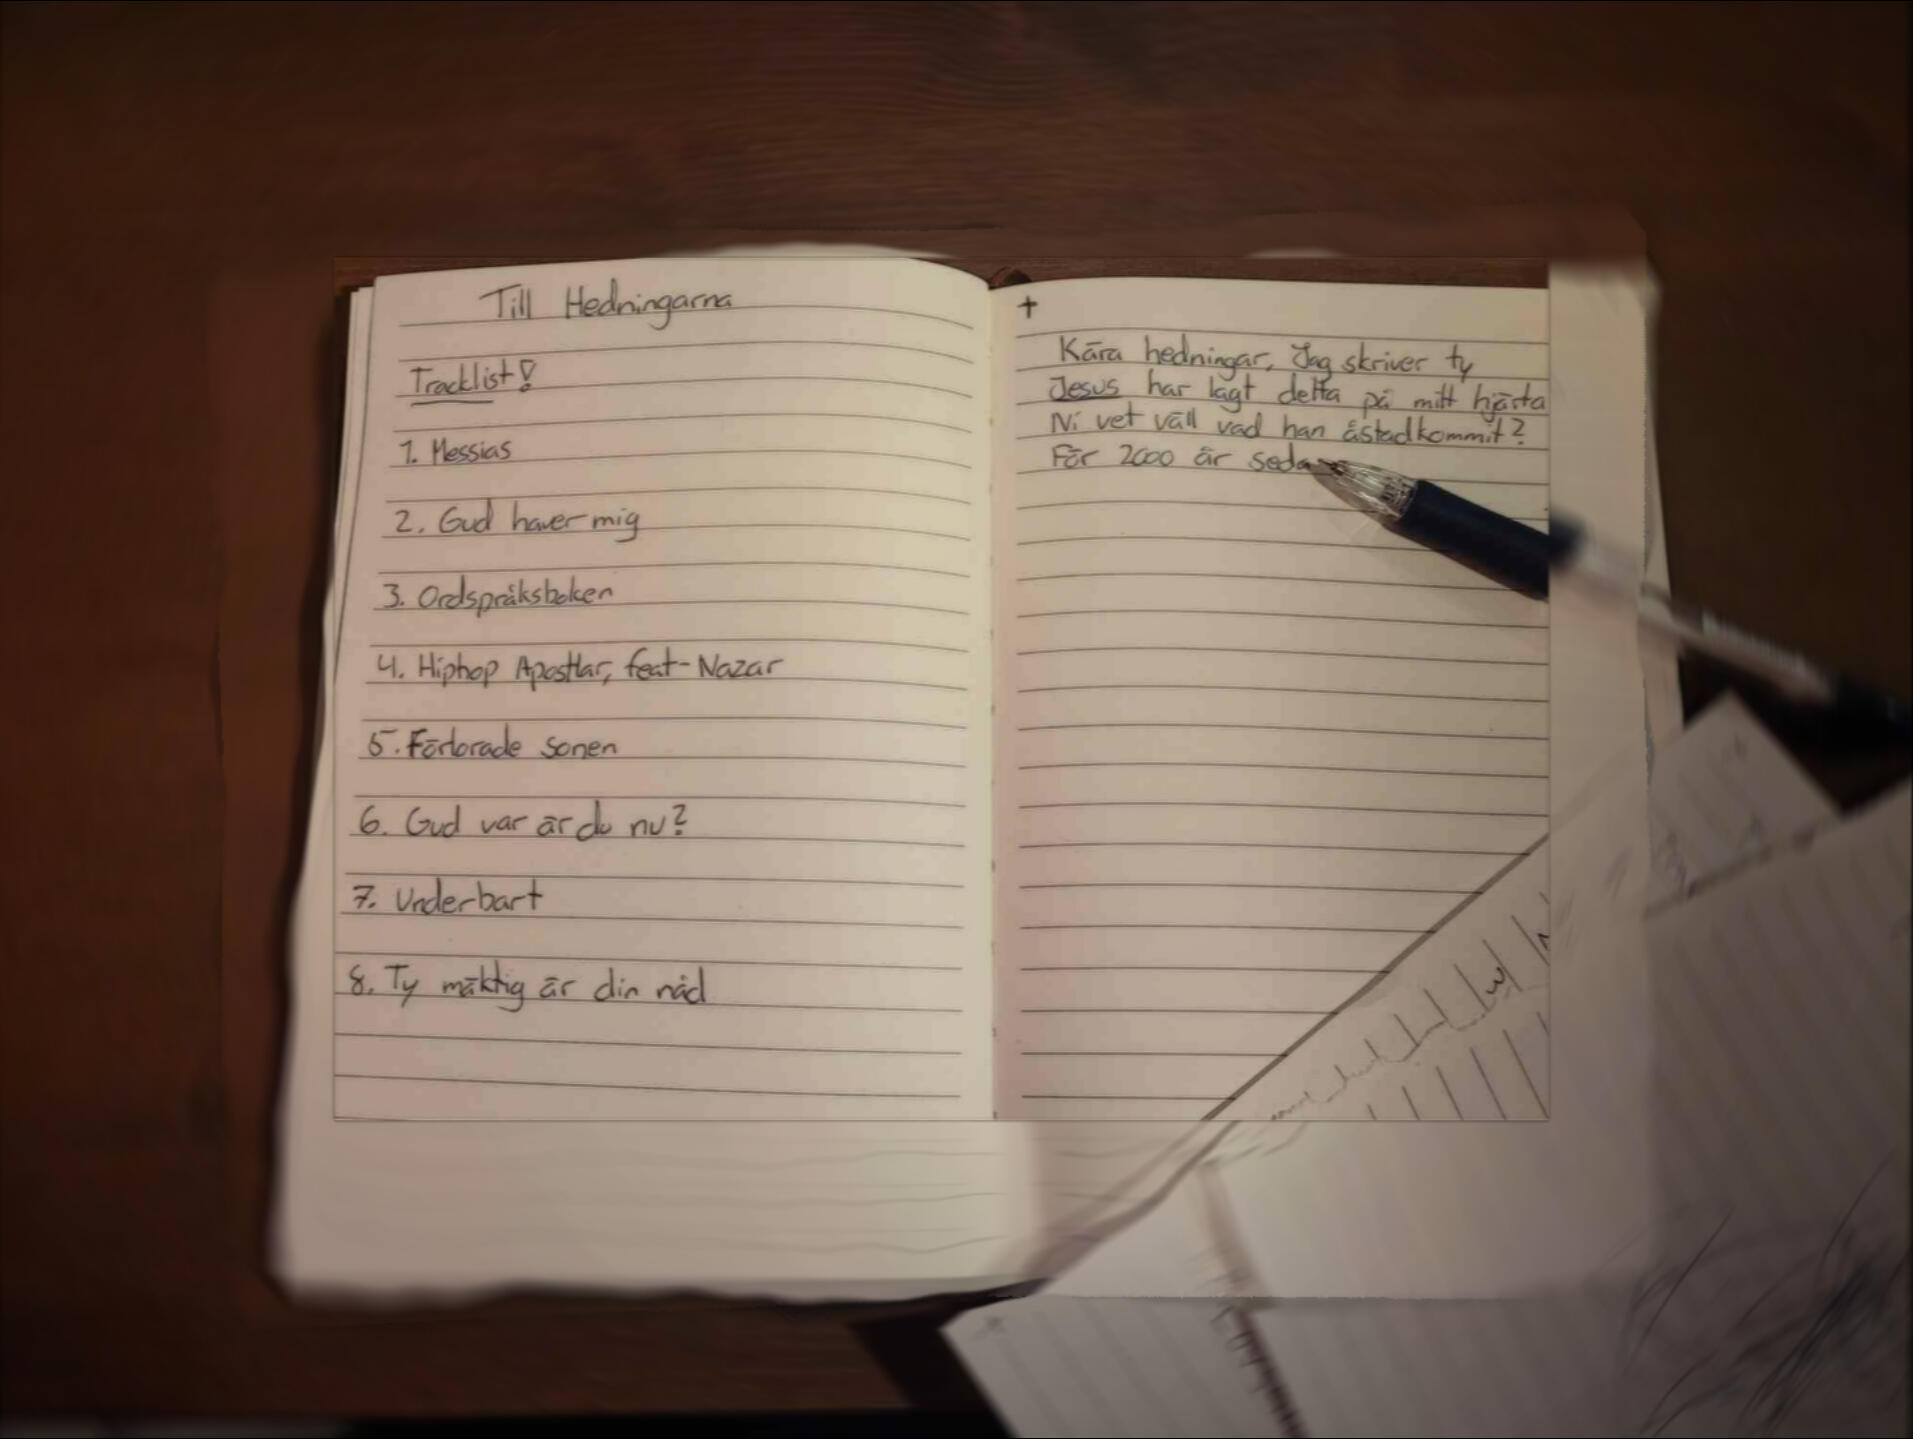 Till Hedningarna
Tracklist!
1. Messias
2. Gud haver mig
3. Ordspråksboken
4. Hiphop Apostlar, feat-Nazar
5. Förlorade sonen
6. Gud var är du nu?
7. Underbart
8. Ty mäktig är din nåd
†
Kära hedningar, Jag skriver ty
Jesus har lagt detta på mitt hjärta
Ni vet väll vad han åstadkommit?
För 2000 år seda